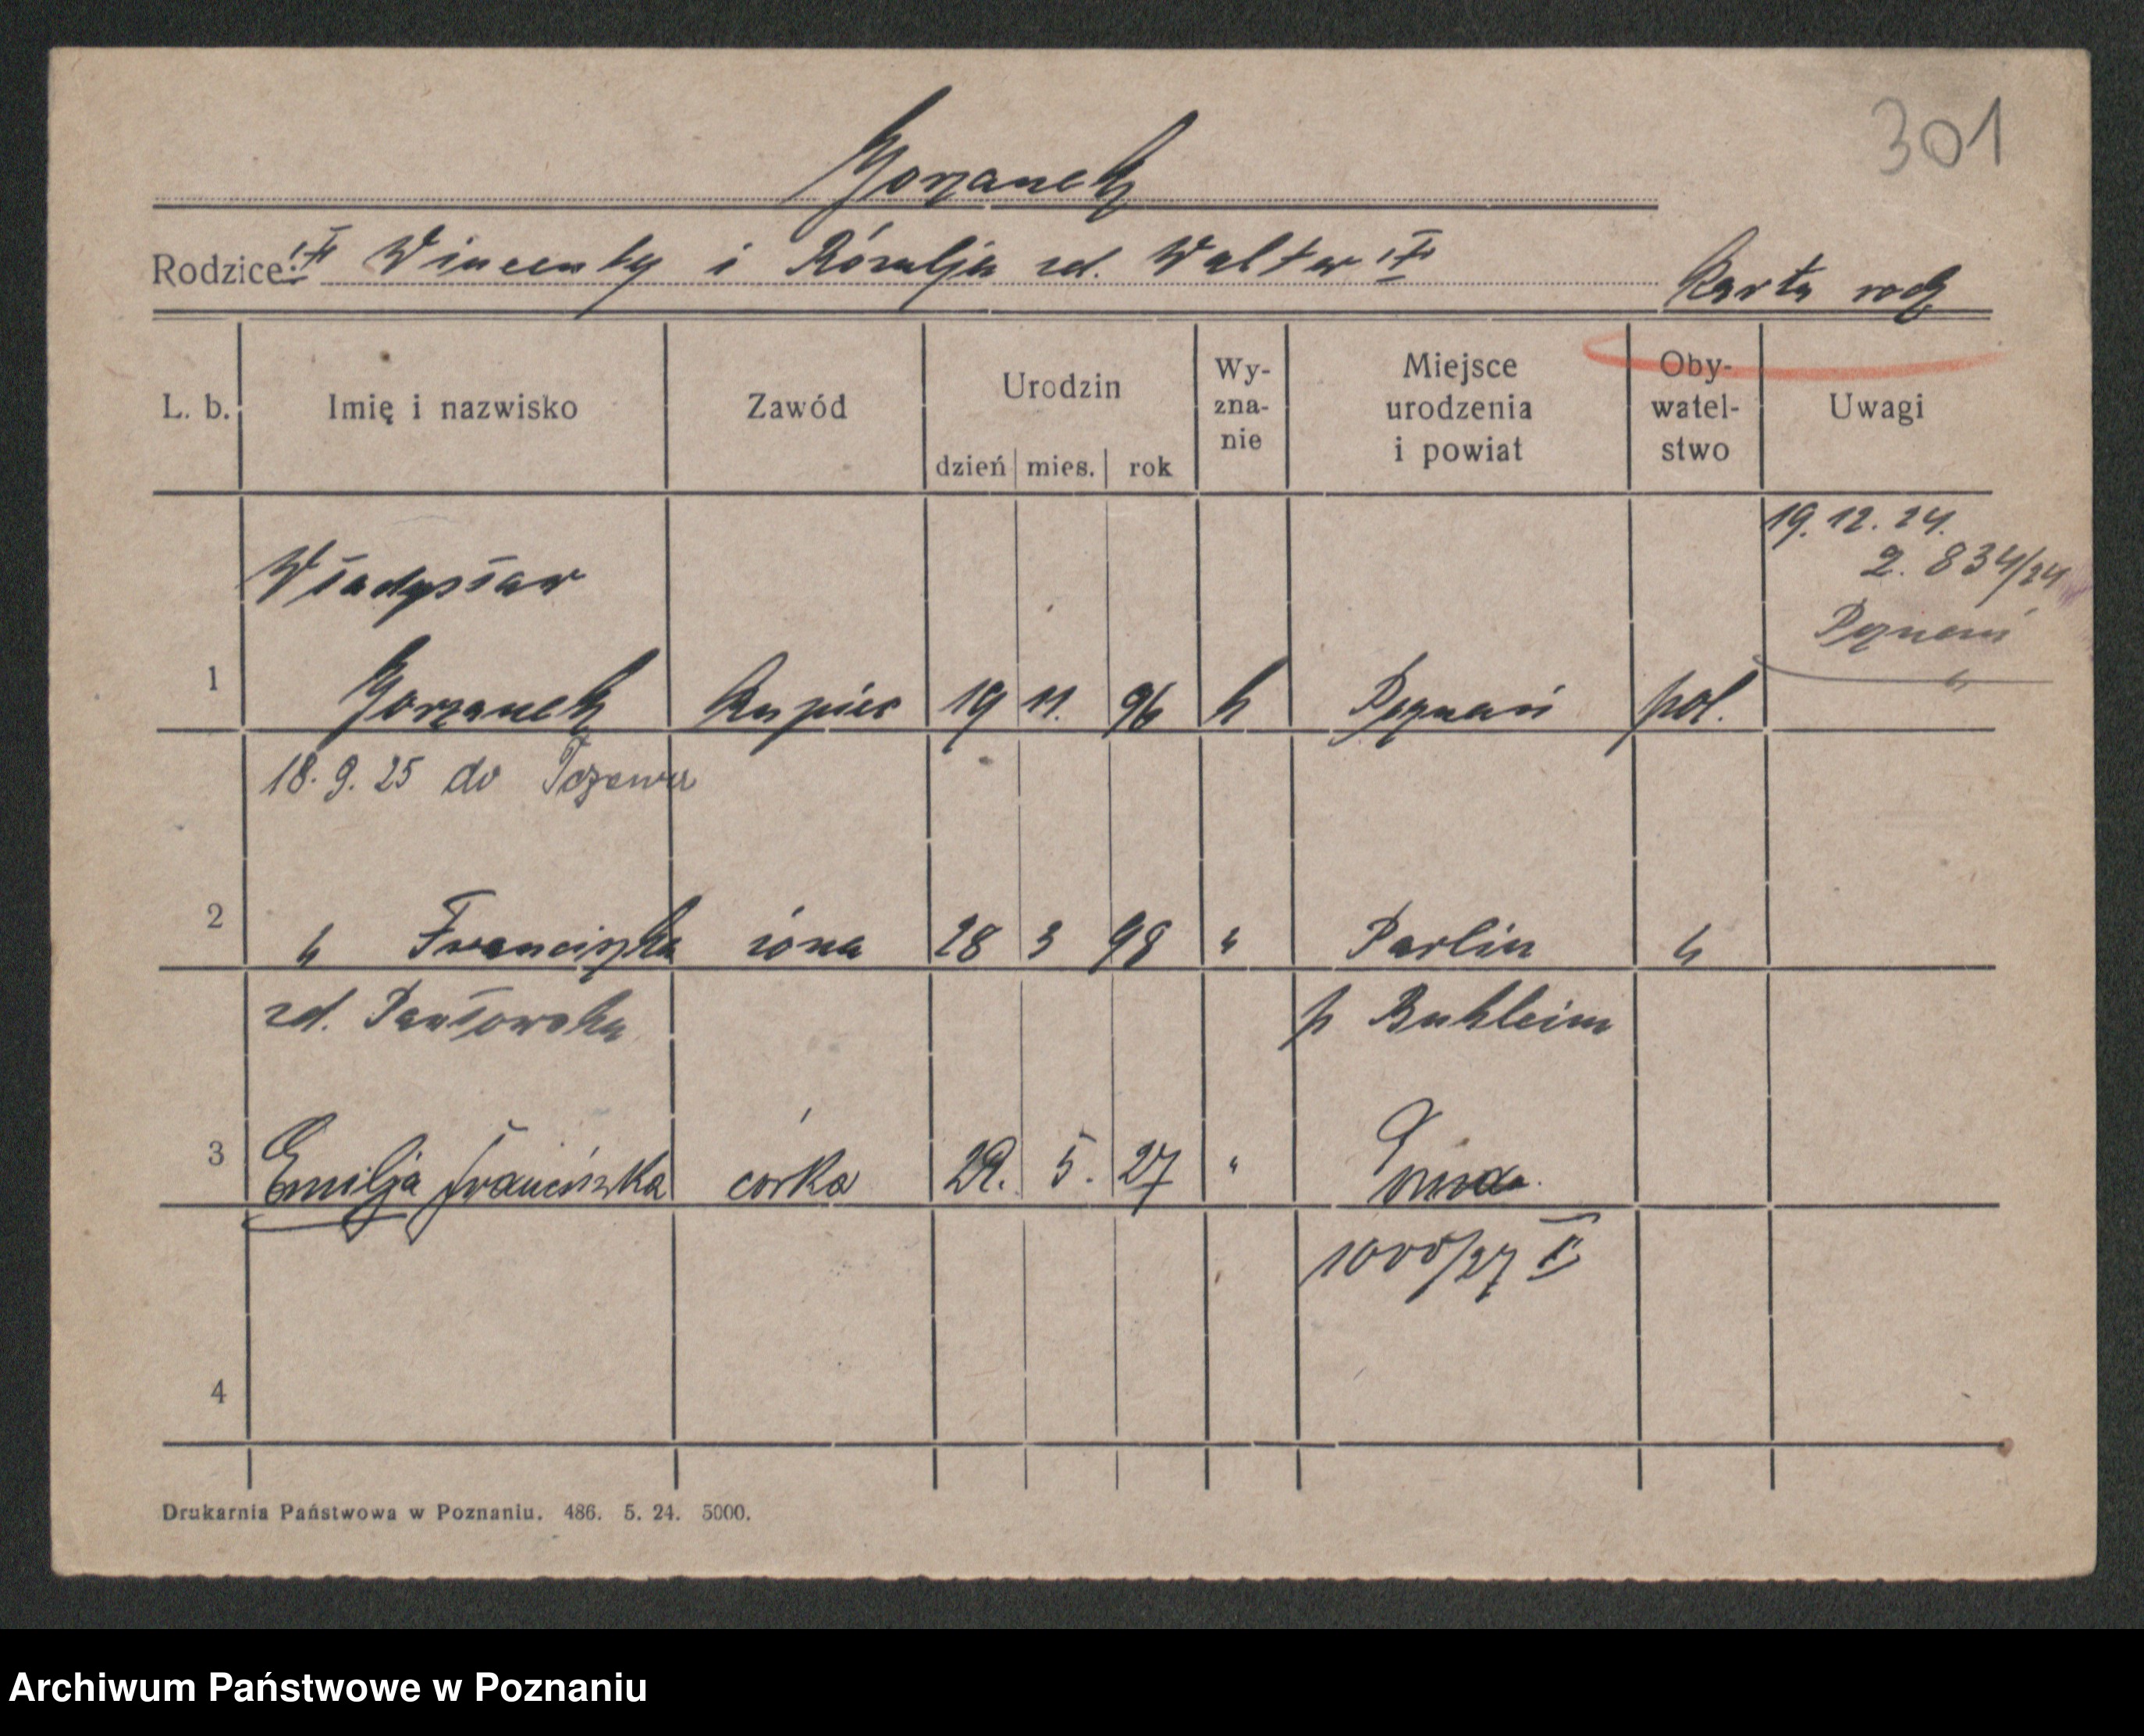 301
Gorzanek
Rodzice: Wincenty i Rózalja zd. Walter
Karta rodz
L. b. Imię i nazwisko Zawód Urodzin dzień mies. rok Wy-zna-nie Miejsce urodzenia i powiat Oby-watel-stwo Uwagi
19. 12. 24.
Władysław 2. 834/24
Poznań
1 Gorzanek Kupiec 19 11. 96 k Poznań pol.
18. 9. 25 do Tczewa
2 " Franciszka żona 28 3 98 " Parlin "
zd. Pawłowska p
3 Emilja Franciszka córka 29. 5. 27 "
1000/27 II
4
Drukarnia Państwowa w Poznaniu. 486. 5. 24. 5000.
Archiwum Państwowe w Poznaniu